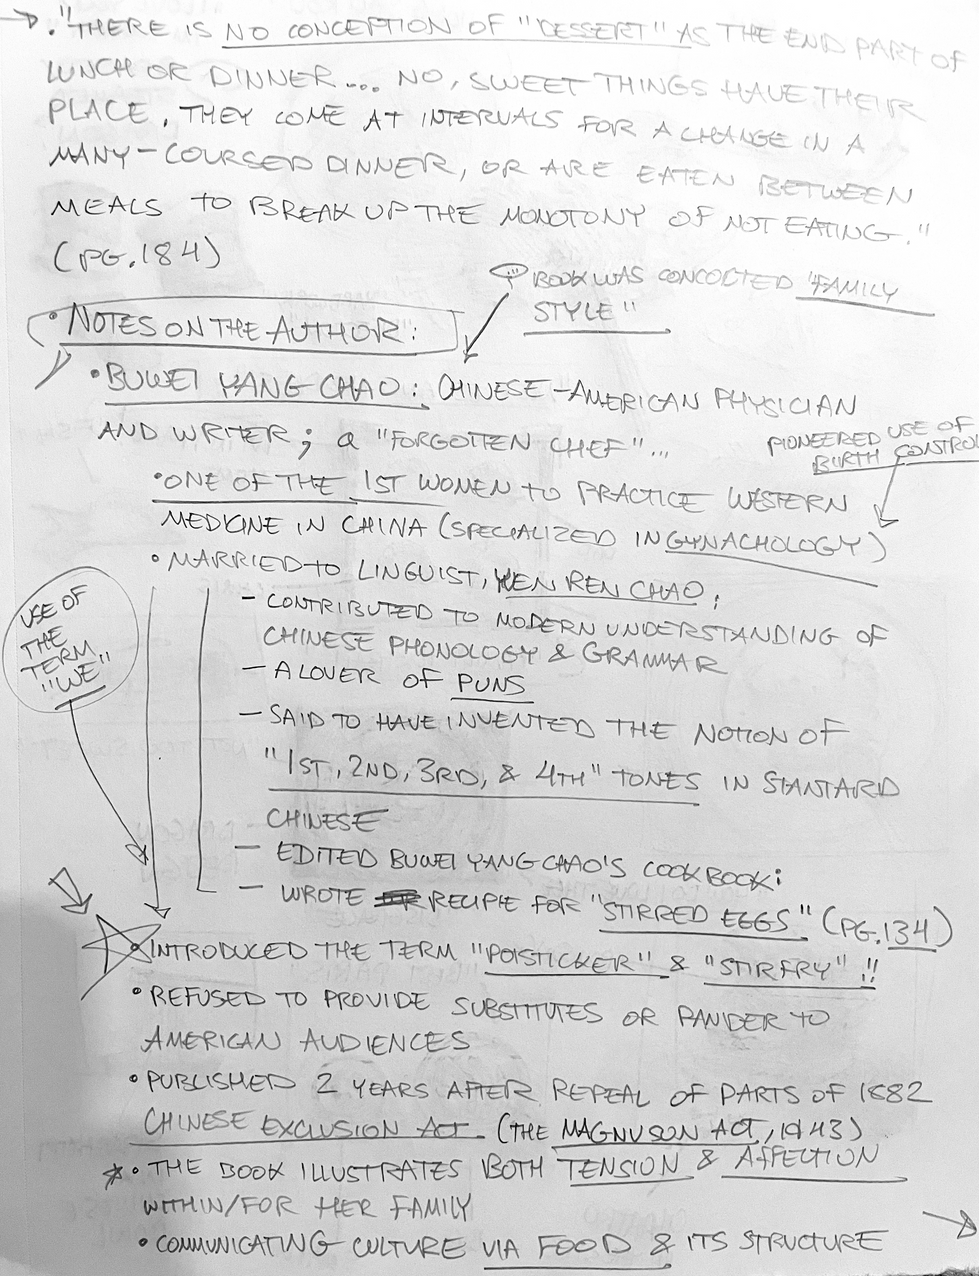 → • "THERE IS NO CONCEPTION OF "DESSERT" AS THE END PART OF
LUNCH OR DINNER... NO, SWEET THINGS HAVE THEIR
PLACE, THEY COME AT INTERVALS FOR A CHANGE IN A
MANY-COURSED DINNER, OR ARE EATEN BETWEEN
MEALS TO BREAK UP THE MONOTONY OF NOT EATING."
(PG.184)
BOOK WAS CONCOCTED "FAMILY
STYLE"
• NOTES ON THE AUTHOR:
• BUWEI YANG CHAO: CHINESE-AMERICAN PHYSICIAN
AND WRITER; a "FORGOTTEN CHEF"...
PIONEERED USE OF
BIRTH CONTROL
• ONE OF THE 1ST WOMEN TO PRACTICE WESTERN
MEDICINE IN CHINA (SPECIALIZED IN GYNACHOLOGY)
• MARRIED TO LINGUIST, YUEN REN CHAO;
USE OF
THE
TERM
"WE"
- CONTRIBUTED TO MODERN UNDERSTANDING OF
CHINESE PHONOLOGY & GRAMMAR
- A LOVER OF PUNS
- SAID TO HAVE INVENTED THE NOTION OF
"1ST, 2ND, 3RD, & 4TH" TONES IN STANTARD
CHINESE
- EDITED BUWEI YANG CHAO'S COOKBOOK;
- WROTE RECIPIE FOR "STIRRED EGGS" (PG.134)
• INTRODUCED THE TERM "POTSTICKER" & "STIR FRY"!!
• REFUSED TO PROVIDE SUBSTITUTES OR PANDER TO
AMERICAN AUDIENCES
• PUBLISHED 2 YEARS AFTER REPEAL OF PARTS OF 1882
CHINESE EXCLUSION ACT (THE MAGNUSON ACT, 1943)
* • THE BOOK ILLUSTRATES BOTH TENSION & AFFECTION
WITHIN/FOR HER FAMILY
• COMMUNICATING CULTURE VIA FOOD & ITS STRUCTURE